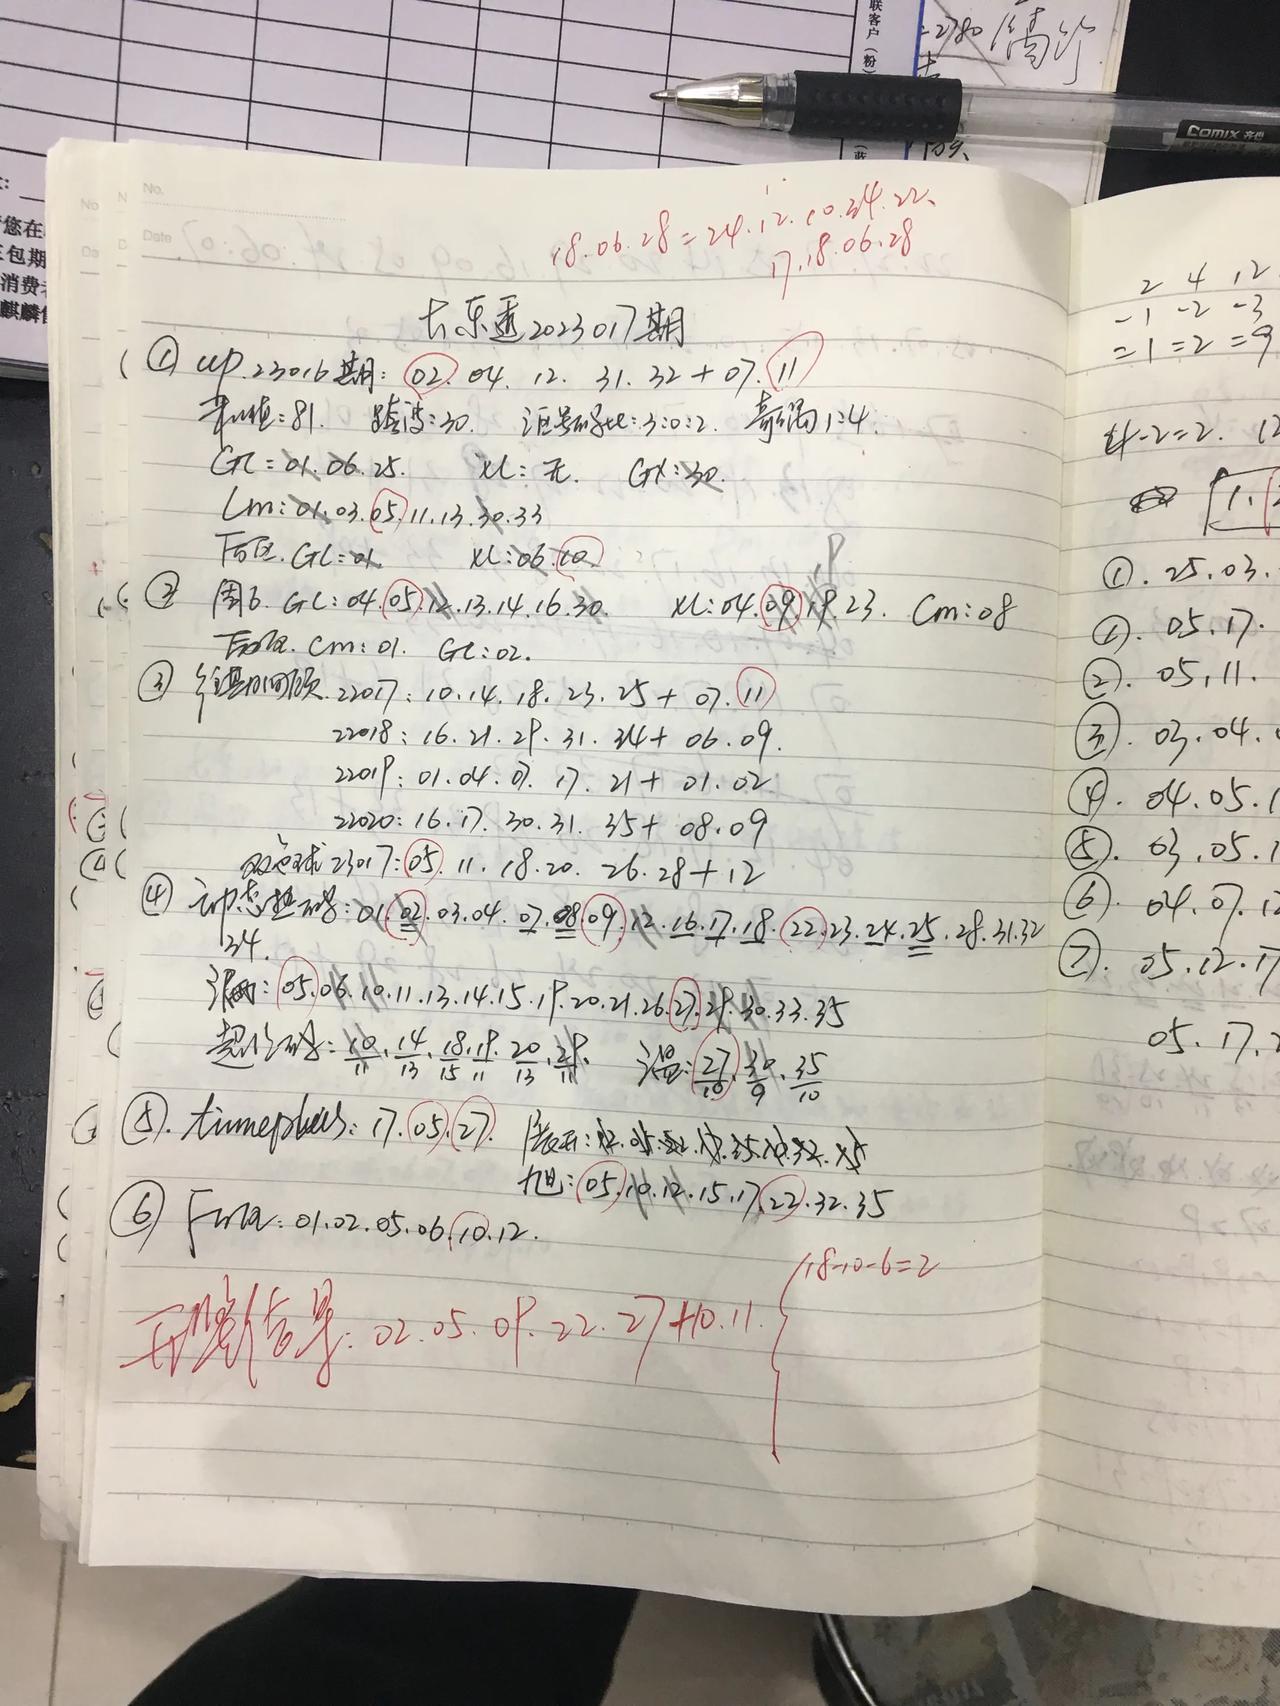 联客户(粉)
-2780
Comix 齐心
您在
三包期
消费者
麒麟
No.
Date
18.06.28=24.12.10.34.22.
17.18.06.28
大乐透2023017期
① up.23016期: 02. 04. 12. 31. 32 + 07. 11
和值=81. 跨度:30. 沿号码比:3:0:2. 奇偶1:4.
GL=01.06.25. XL:无. GX:30.
Lm:01.03.05.11.13.30.33
后区. GL=01. XL:06.10.
② 周6. GL:04.05.12.13.14.16.30. XL:04.09.19.23. Cm:08
后区. Cm:01. GL:02.
③ 22017:10.14.18.23.25+07.11
22018:16.21.29.31.34+06.09.
22019:01.04.07.17.21+01.02
22020:16.17.30.31.35+08.09
双色球23017:05.11.18.20.26.28+12
④ 动态热码:01.02.03.04.07.08.09.12.16.17.18.22.23.24.25.28.31.32
34.
05.06.10.11.13.14.15.19.20.21.26.27.29.30.33.35
超冷码:10/11.14/13.18/15.19/11.20/13.29/11. 温:27/10.30/9.35/10
⑤. 17.05.27.
旭:05.10.12.15.17.22.32.35
⑥ 01.02.05.06.10.12.
18-10-6=2
开奖结果:02.05.09.22.27+10.11.
2 4 12
-1 -2 -3
=1 =2 =9
4-2=2.
①. 25.03.
①. 05.17.
②. 05.11.
③. 03.04.
④. 04.05.1
⑤. 03.05.1
⑥. 04.07.12
⑦. 05.12.17
05.17.2